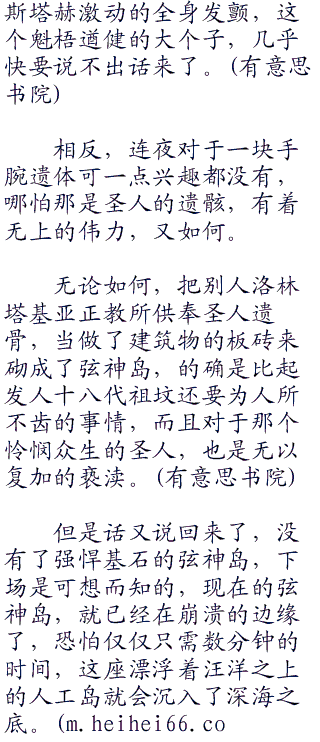 斯塔赫激动的全身发颤，这
个魁梧遒健的大个子，几乎
快要说不出话来了。(有意思
书院)
相反，连夜对于一块手
腕遗体可一点兴趣都没有，
哪怕那是圣人的遗骸，有着
无上的伟力，又如何。
无论如何，把别人洛林
塔基亚正教所供奉圣人遗
骨，当做了建筑物的板砖来
砌成了弦神岛，的确是比起
发人十八代祖坟还要为人所
不齿的事情，而且对于那个
怜悯众生的圣人，也是无以
复加的亵渎。(有意思书院)
但是话又说回来了，没
有了强悍基石的弦神岛，下
场是可想而知的，现在的弦
神岛，就已经在崩溃的边缘
了，恐怕仅仅只需数分钟的
时间，这座漂浮着汪洋之上
的人工岛就会沉入了深海之
底。(m.heihei66.co